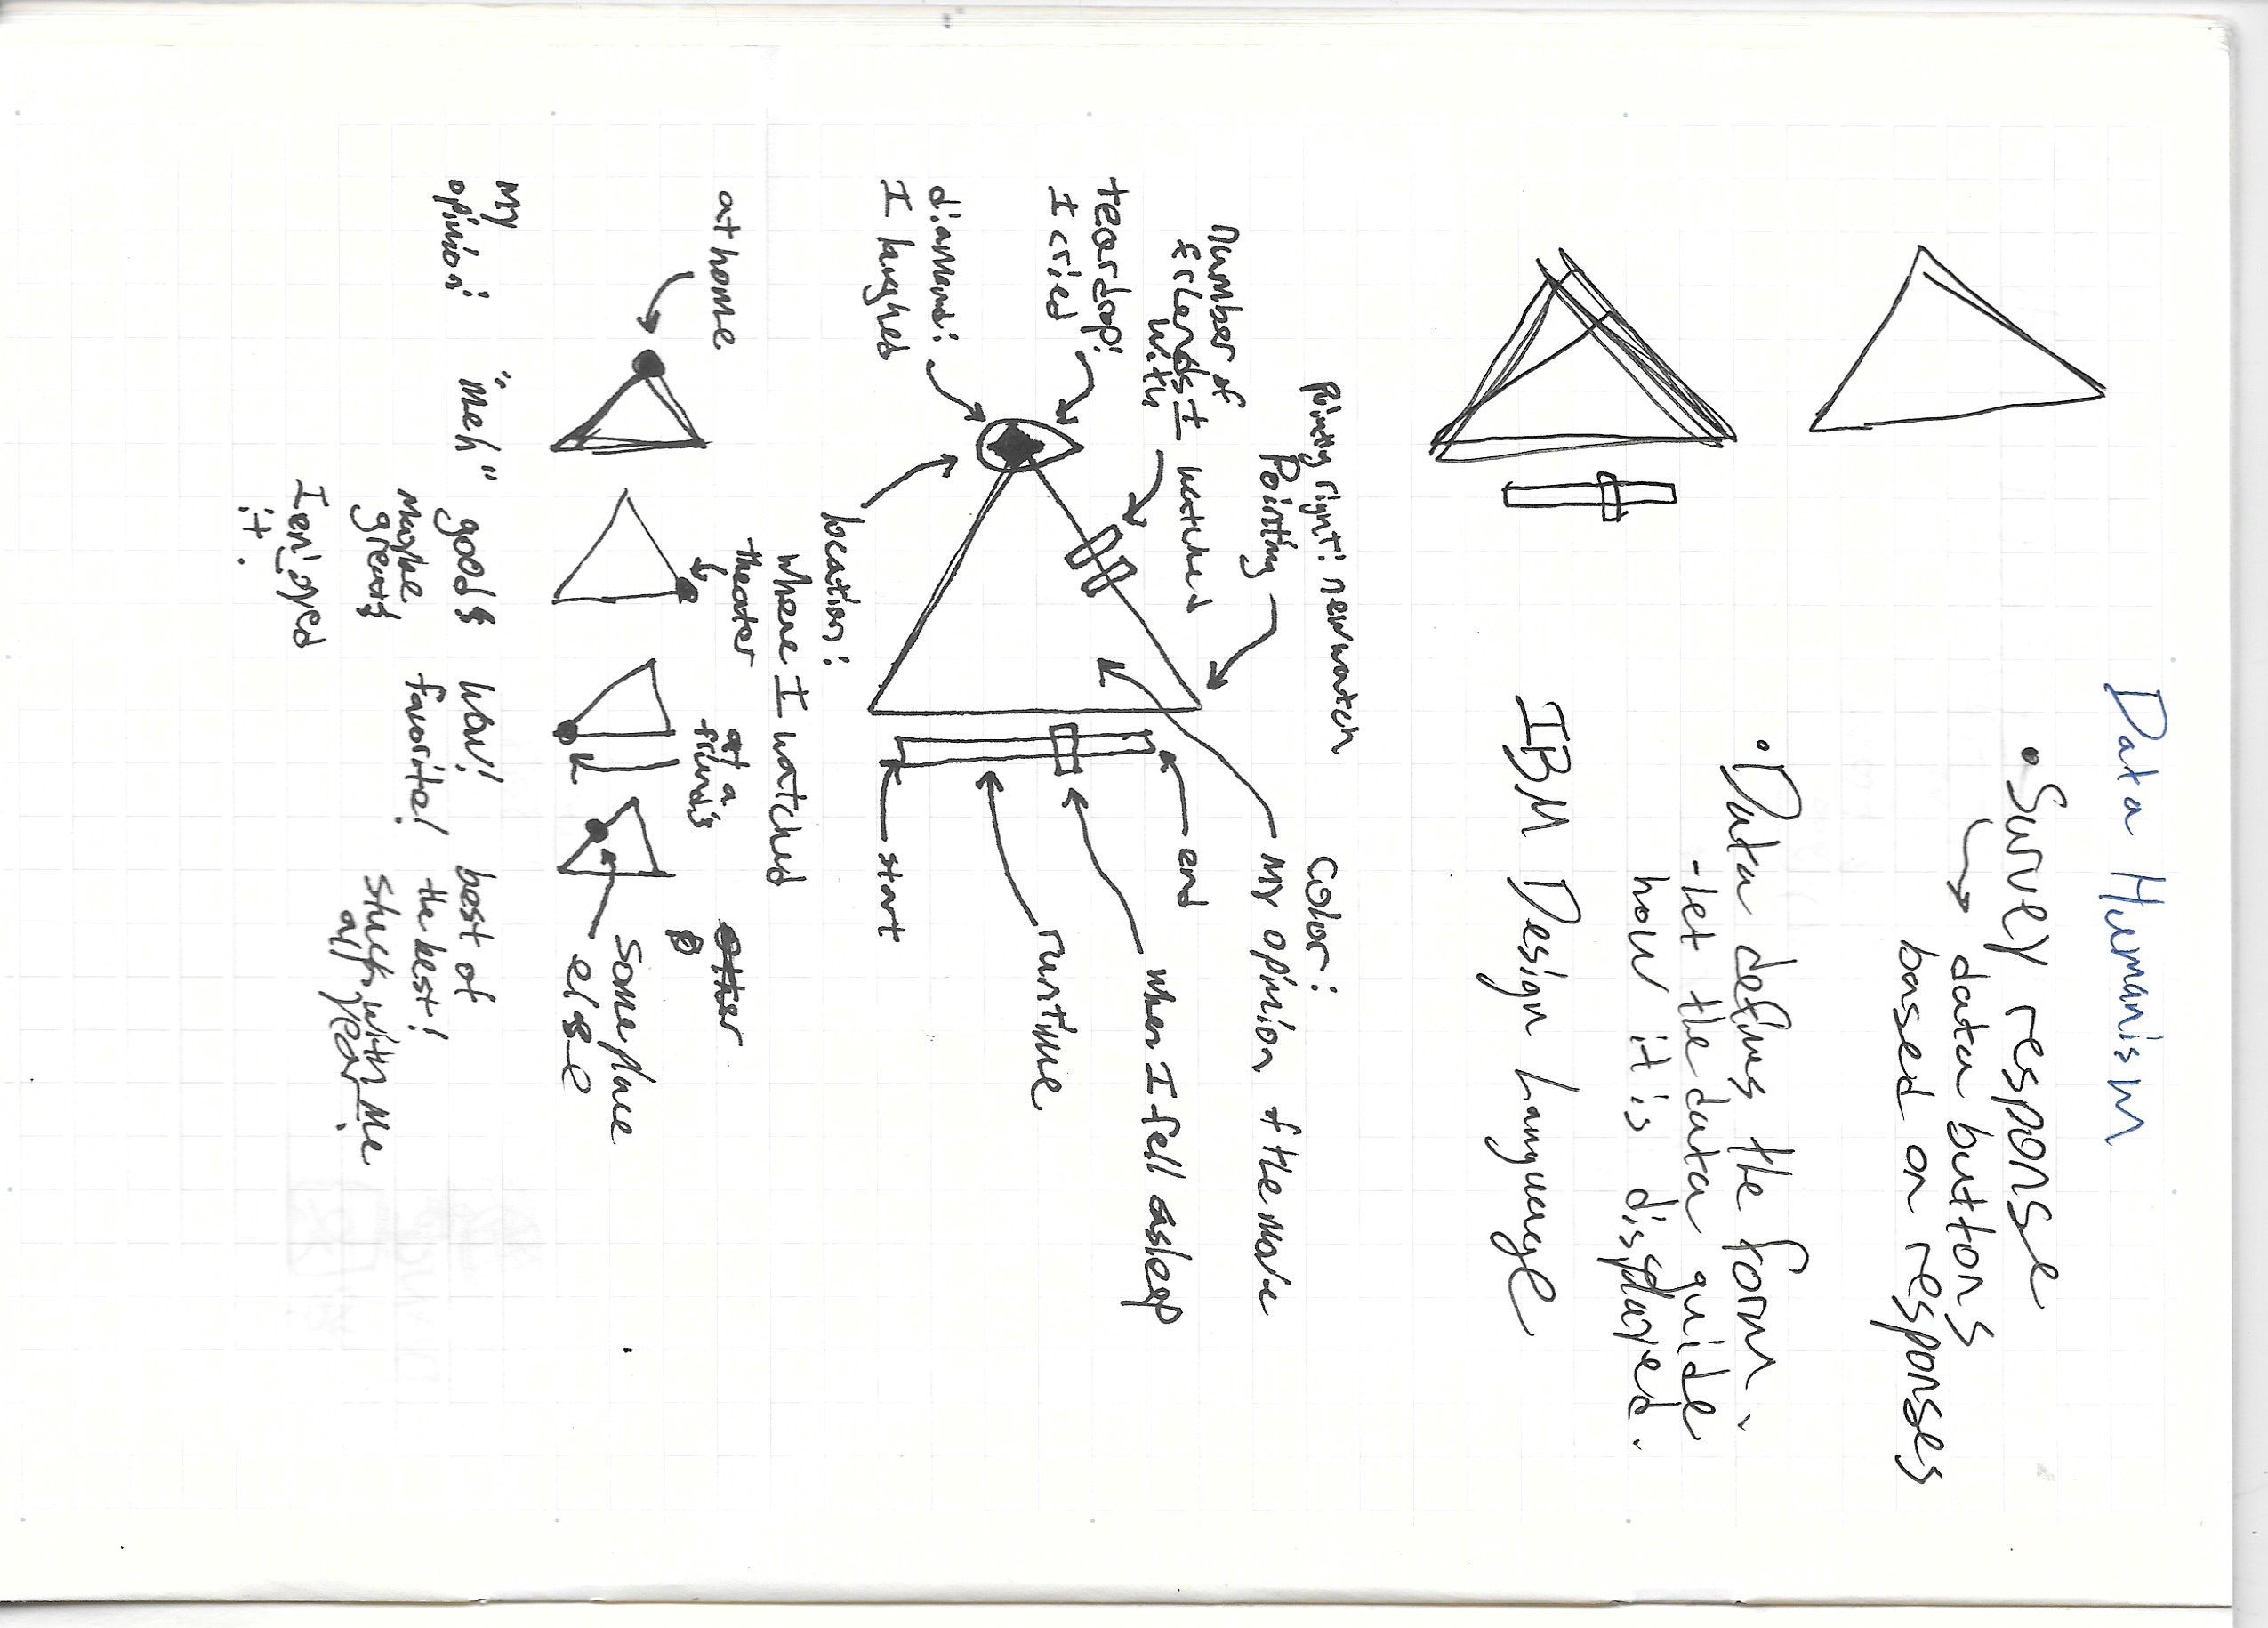 Data Humanism
• Survey response
data buttons
based on responses
• Data defines the form.
- let the data guide
how it is displayed.
IBM Design Language
right: new watch
Pointing
color:
my opinion of the movie
number of
friends I watched
with
end
when I fell asleep
teardrop:
I cried
runtime
diamond:
I laughed
start
location:
where I watched
at home
theater
at a
friend's
other
some place
else
my
opinion:
"meh"
good &
maybe
great &
I enjoyed
it.
wow!
favorite!
best of
the best!
stuck with me
all year.